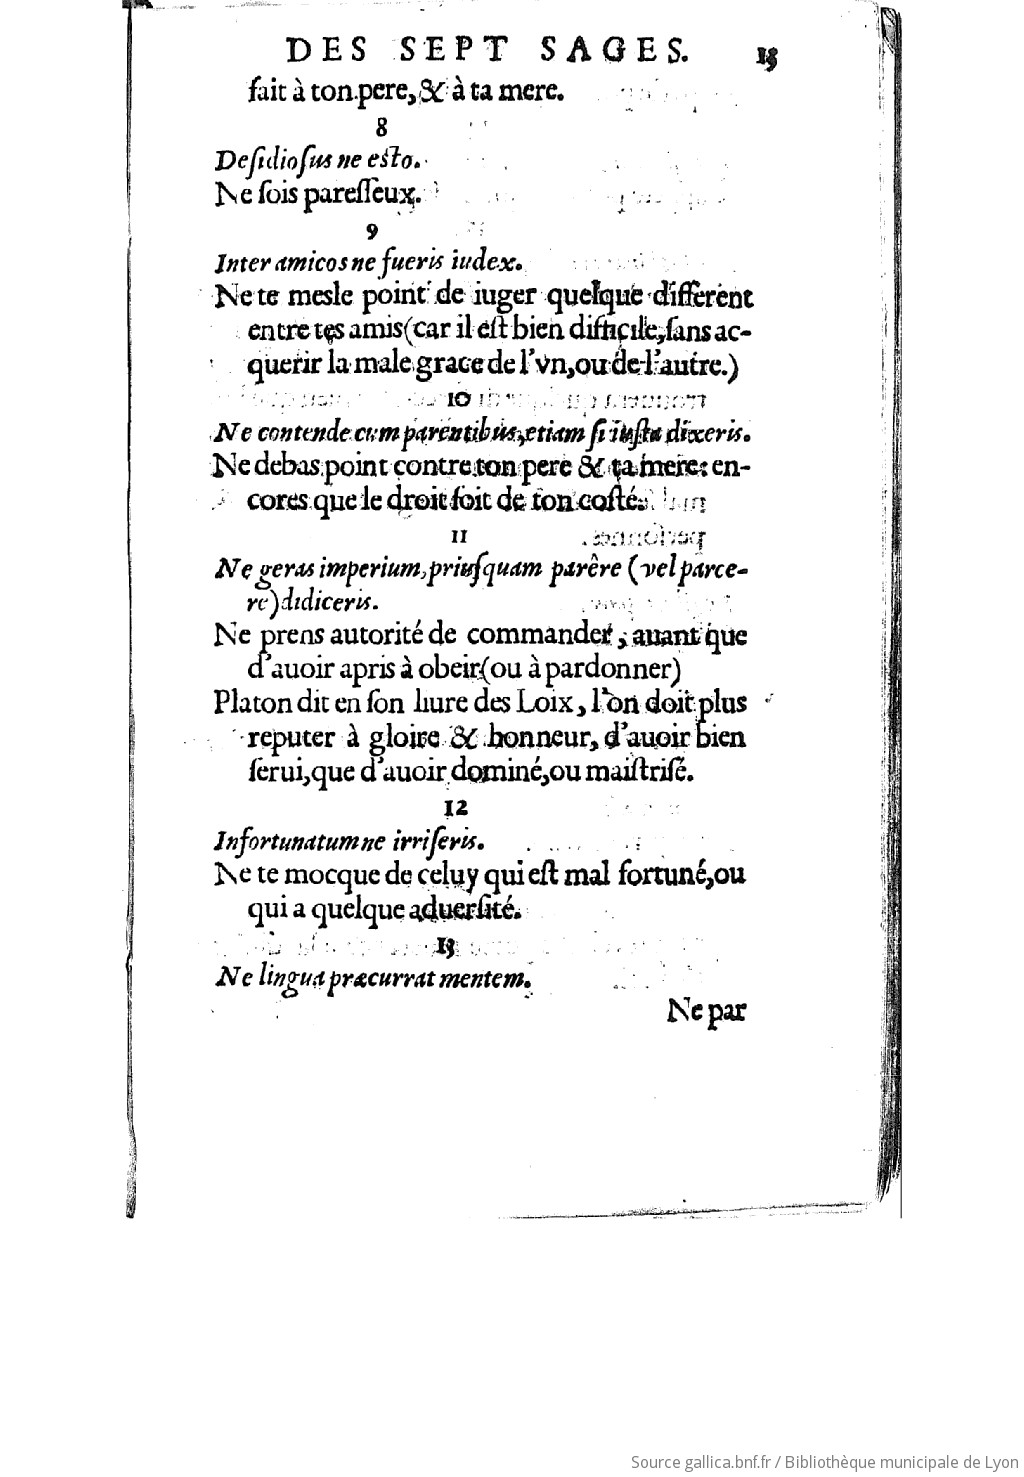 DES SEPT SAGES. 13
fait à ton pere, & à ta mere.
8
Deſidioſus ne esto.
Ne ſois pareſſeux.
9
Inter amicos ne fueris iudex.
Ne te mesle point de iuger quelque different
entre tes amis (car il eſt bien difficile, ſans ac-
querir la male grace de l'vn, ou de l'autre.)
10
Ne contende cum parentibus, etiam ſi iuſta dixeris.
Ne debas point contre ton pere & ta mere: en-
cores que le droit ſoit de ton coſté.
11
Ne geras imperium, priuſquam parêre (vel parce-
re) didiceris.
Ne prens autorité de commander, auant que
d'auoir apris à obeir (ou à pardonner)
Platon dit en ſon liure des Loix, l'on doit plus
reputer à gloire & honneur, d'auoir bien
ſerui, que d'auoir dominé, ou maiſtriſé.
12
Infortunatum ne irriſeris.
Ne te mocque de celuy qui eſt mal fortuné, ou
qui a quelque aduerſité.
13
Ne lingua præcurrat mentem.
Ne par
Source gallica.bnf.fr / Bibliothèque municipale de Lyon